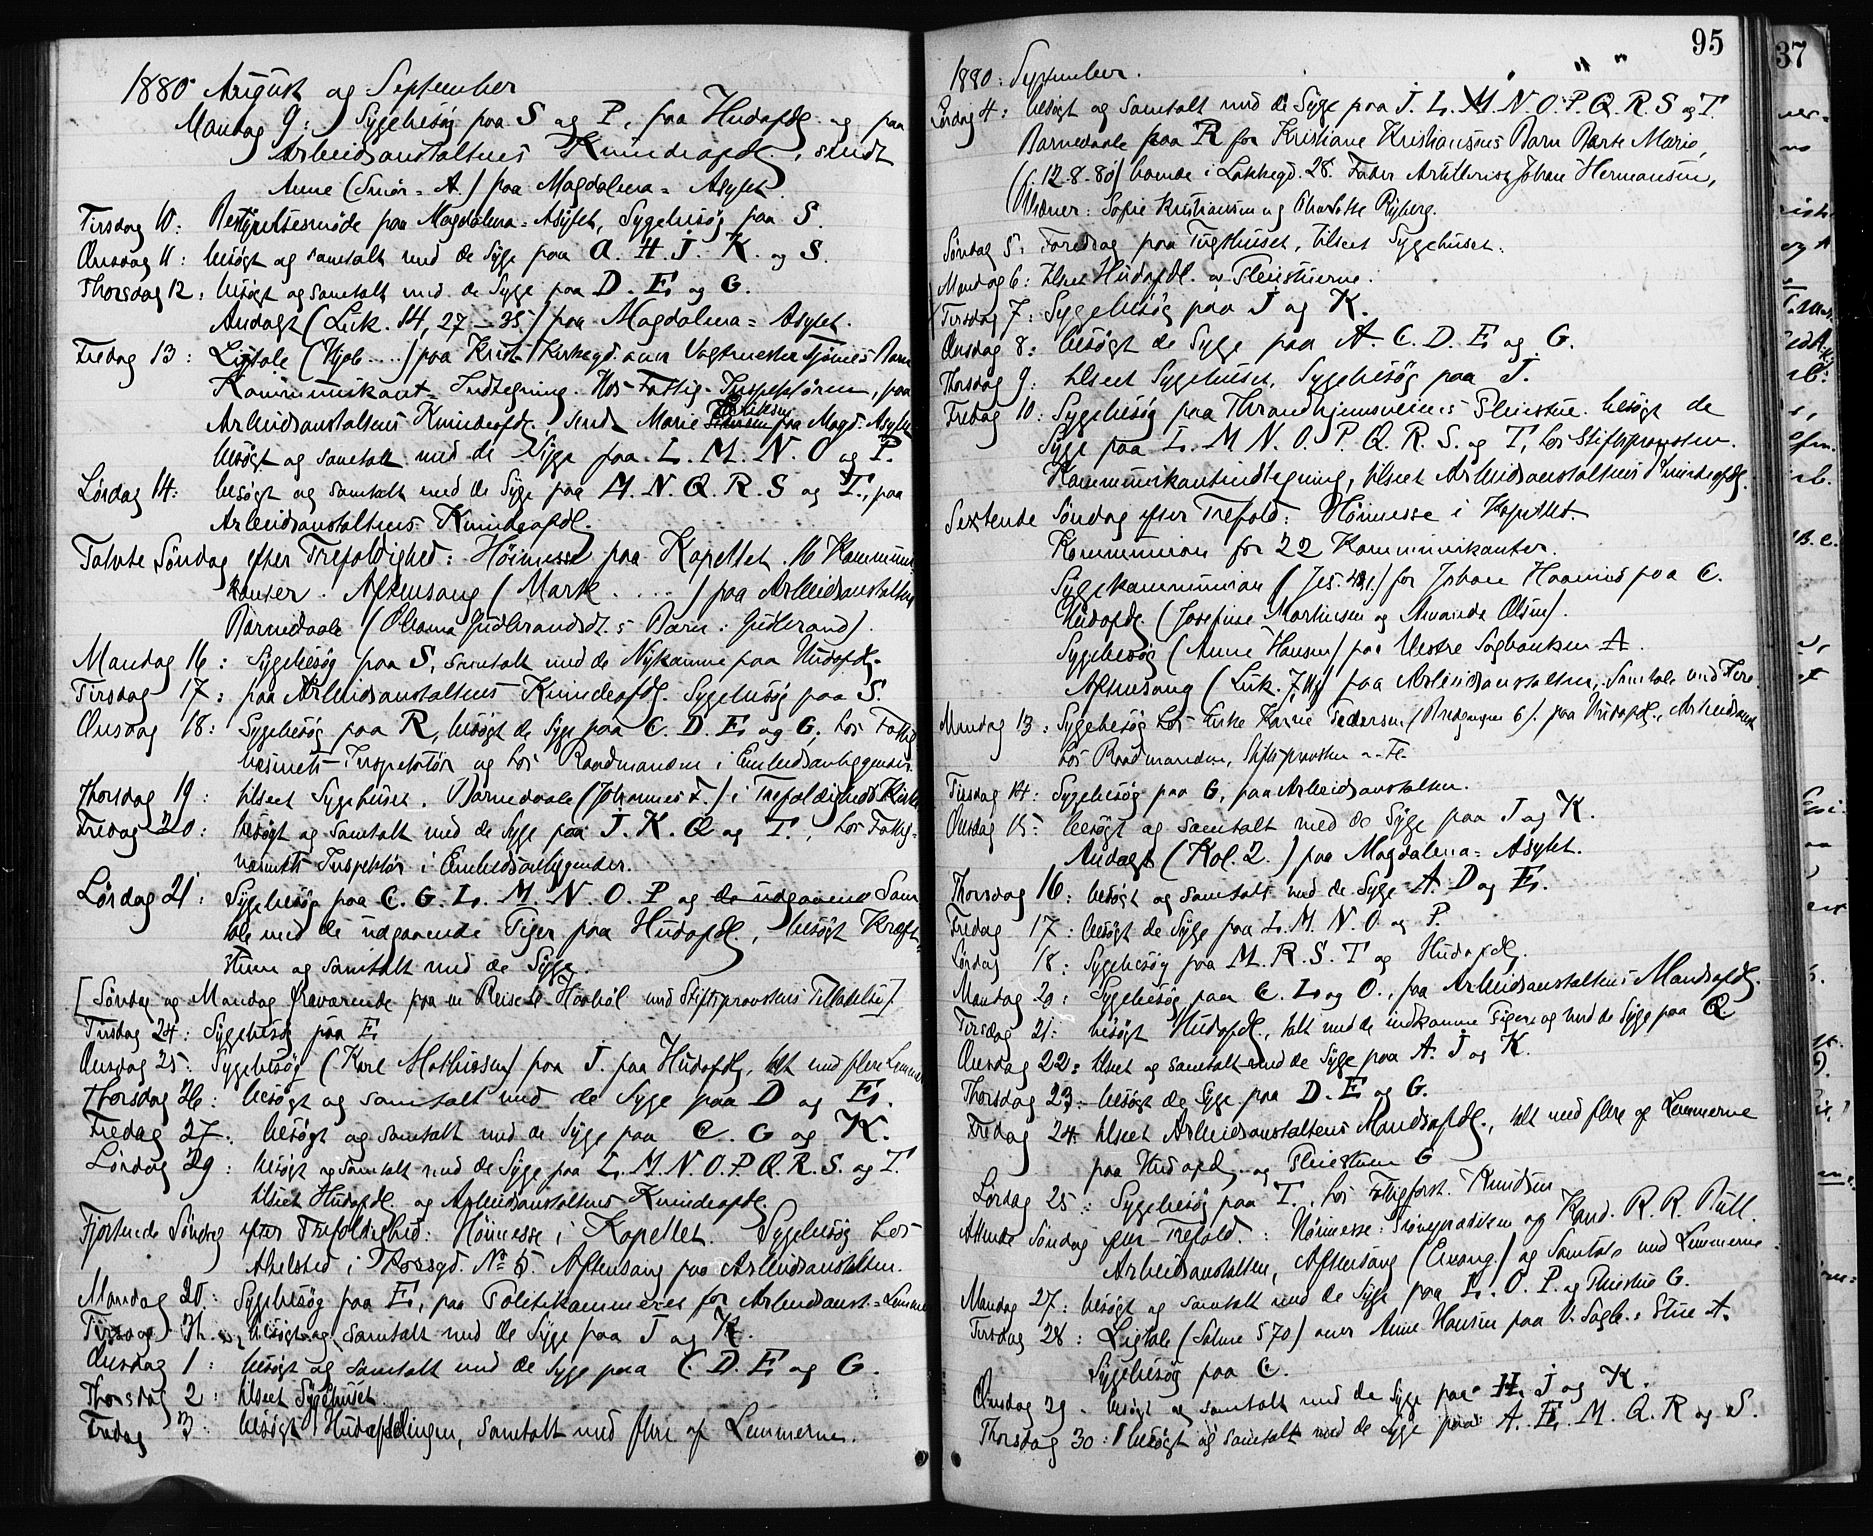 1880 August og September
Mandag 9: Sygebesög paa S og P, paa Hudafdl. og paa
Arbeidsanstaltens Kvindeafdl., sendt
Anne (Smör-A.) paa Magdalena-Asylet
Tirsdag 10: Bestyrelsesmöde paa Magdalena-Asylet, Sygebesög paa S.
Onsdag 11: besögt og samtalt med de Syge paa A. H. J. K. og S.
Thorsdag 12: besögt og samtalt med de Syge paa D. E. og G.
Andagt (Luk. 14, 27-35) paa Magdalena-Asylet.
Fredag 13: Ligtale (Hjob ....) paa Krist Kirkegd. over Vagtmester Tjömes Barn
Kommunikant-Indtegning. Hos Fattig-Inspektören, paa
Arbeidsanstaltens Kvindeafdl., sendt Marie paa Magd. Asylet
besögt og samtalt med de Syge paa L. M. N. O og P.
Lördag 14: besögt og samtalt med de Syge paa M. N. Q. R. S og T., paa
Arbeidsanstaltens Kvindeafdl.
Tolvte Söndag efter Trefoldighed: Höimesse paa Kapellet. 16 Kommuni-
kanter. Aftensang (Mark ....) paa Arbeidsanstalten
Barnedaab (Oleana Gudbrandsdt.s Barn: Gudbrand).
Mandag 16: Sygebesög paa S, samtalt med de Nykomne paa Hudafdl.
Tirsdag 17: paa Arbeidsanstaltens Kvindeafdl. Sygebesög paa S.
Onsdag 18: Sygebesög paa R, besögt de Syge paa C. D. E og G, hos Fattig-
væsnets-Inspektör og hos Raadmanden i Embedsanliggender.
Thorsdag 19: tilseet Sygehuset. Barnedaab (Johannes F.) i Trefoldigheds Kirke
Fredag 20: besögt og samtalt med de Syge paa J. K. Q og T., hos Fattig-
væsnets Inspektör i Embedsanliggender.
Lördag 21: Sygebesög paa C. G. L. M. N. O. P og de udgaaende Sam-
tale med de udgaaende Piger paa Hudafdl., besögt Kræft-
stuen og samtalt med de Syge.
[Söndag og Mandag fraværende paa en Reise til Hovböl med Stiftsprovstens Tilladelse].
Tirsdag 24: Sygebesög paa E
Onsdag 25: Sygebesög (Karl Mathisen) paa J. paa Hudafdl., talt med flere Lemmer
Thorsdag 26: besögt og samtalt med de Syge paa D og E.
Fredag 27: besögt og samtalt med de Syge paa C. G og K.
Lördag 29: besögt og samtalt med de Syge paa L. M. N. O. P. Q. R. S. og T.
tilseet Hudafdl. og Arbeidsanstaltens Kvindeafdl.
Fjortende Söndag efter Trefoldighed: Höimesse i Kapellet. Sygebesög hos
i Thorsgd. No 5. Aftensang paa Arbeidsanstalten.
Mandag 30: Sygebesög paa E, paa Politikammeret for Arbeidsanst.-Lemmer
Tirsdag 31. besögt og samtalt med de Syge paa J og K.
Onsdag 1: besögt og samtalt med de Syge paa C. D. E og G.
Thorsdag 2: tilseet Sygehuset
Fredag 3: besögt Hudafdelingen, samtalt med flere af Lemmerne.
95
1880: September. " "
Lördag 4: besögt og samtalt med de Syge paa J. L. M. N. O. P. Q. R. S og T.
Barnedaab paa R for Kristiane Kristiansens Barn Marie,
(f. 12-8-80) boende i Lakkegd. 28. Fader Artillerist Johan Hermansen,
Vidner: Sofie Kristiansen og Charlotte Ryberg.
Söndag 5: Foredrag paa Tugthuset, tilseet Sygehuset.
Mandag 6: tilseet Hudafdl. og Pleiestuerne.
Tirsdag 7: Sygebesög paa J og K.
Onsdag 8: besögt de Syge paa A. C. D. E og G.
Thorsdag 9: tilseet Sygehuset, Sygebesög paa J.
Fredag 10: Sygebesög paa Throndhjemsveiens Pleiestue. besögt de
Syge paa L. M N. O. P. Q. R. S. og T, hos Stiftsprovsten.
Kommunikantindtegning, tilseet Arbeidsanstaltens Kvindeafdl.
Sextende Söndag efter Trefold: Höimesse i Kapellet.
Kommunion for 22 Kommunikanter.
Sygekommunion (Jes. ) for Johan paa C.
Hudafdl. (Josefine Martinsen og Amanda Olsen).
Sygebesög (Anne Hansen) paa Vestre Sagbanken A.
Aftensang (Luk. 7, ) paa Arbeidsanstalten, Samtale med
Mandag 13: Sygebesög hos Enke Karine Pedersen (Bredgangen 6). paa Hudafdl., Arbeidsanst.
hos Raadmanden, Stiftsprovsten
Tirsdag 14: Sygebesög paa G, paa Arbeidsanstalten.
Onsdag 15: besögt og samtalt med de Syge paa J og K.
Andagt (Kol. 2.) paa Magdalena-Asylet.
Thorsdag 16: besögt og samtalt med de Syge A. D og E.
Fredag 17: besögt de Syge paa L. M. N. O. og P.
Lördag 18: Sygebesög paa M. R. S. T og Hudafdl.
Mandag 20: Sygebesög paa C. L. og O., paa Arbeidsanstaltens Mandsafdl.
Tirsdag 21: besögt Hudafdl., talt med de indkomne Piger og med de Syge paa Q
Onsdag 22: tilseet og samtalt med de Syge paa A. J og K.
Thorsdag 23: besögt de Syge paa D. E og G.
Fredag 24: tilseet Arbeidsanstaltens Mandsafdl., talt med flere af Lemmerne
paa Hudafdl. og Pleiestuen G
Lördag 25: Sygebesög paa T., hos Fattigforst. Knudsen
Attende Söndag efter Trefold.: Höimesse: Pröveprædiken af Kand. R. R. Bull.
Arbeidsanstalten, Aftensang (Evang.) og Samtale med Lemmerne.
Mandag 27: besögt og samtalt med de Syge paa L. O. P. og Pleiestue G.
Tirsdag 28: Ligtale (Salme 570) over Anne Hansen paa V. Sagb.s Stue A.
Sygebesög paa C.
Onsdag 29. besögt og samtalt med de Syge paa H. J og K.
Thorsdag 30: besögt og samtalt med de Syge paa A. E. M. Q. R og S.
37